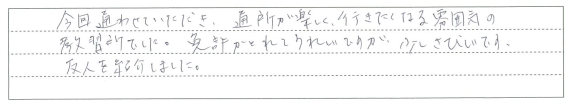 今回通わせていただき、通所が楽しく、行きたくなる雰囲気の
教習所でした。免許がとれてうれしいですが、少しさびしいです。
友人を紹介しました。